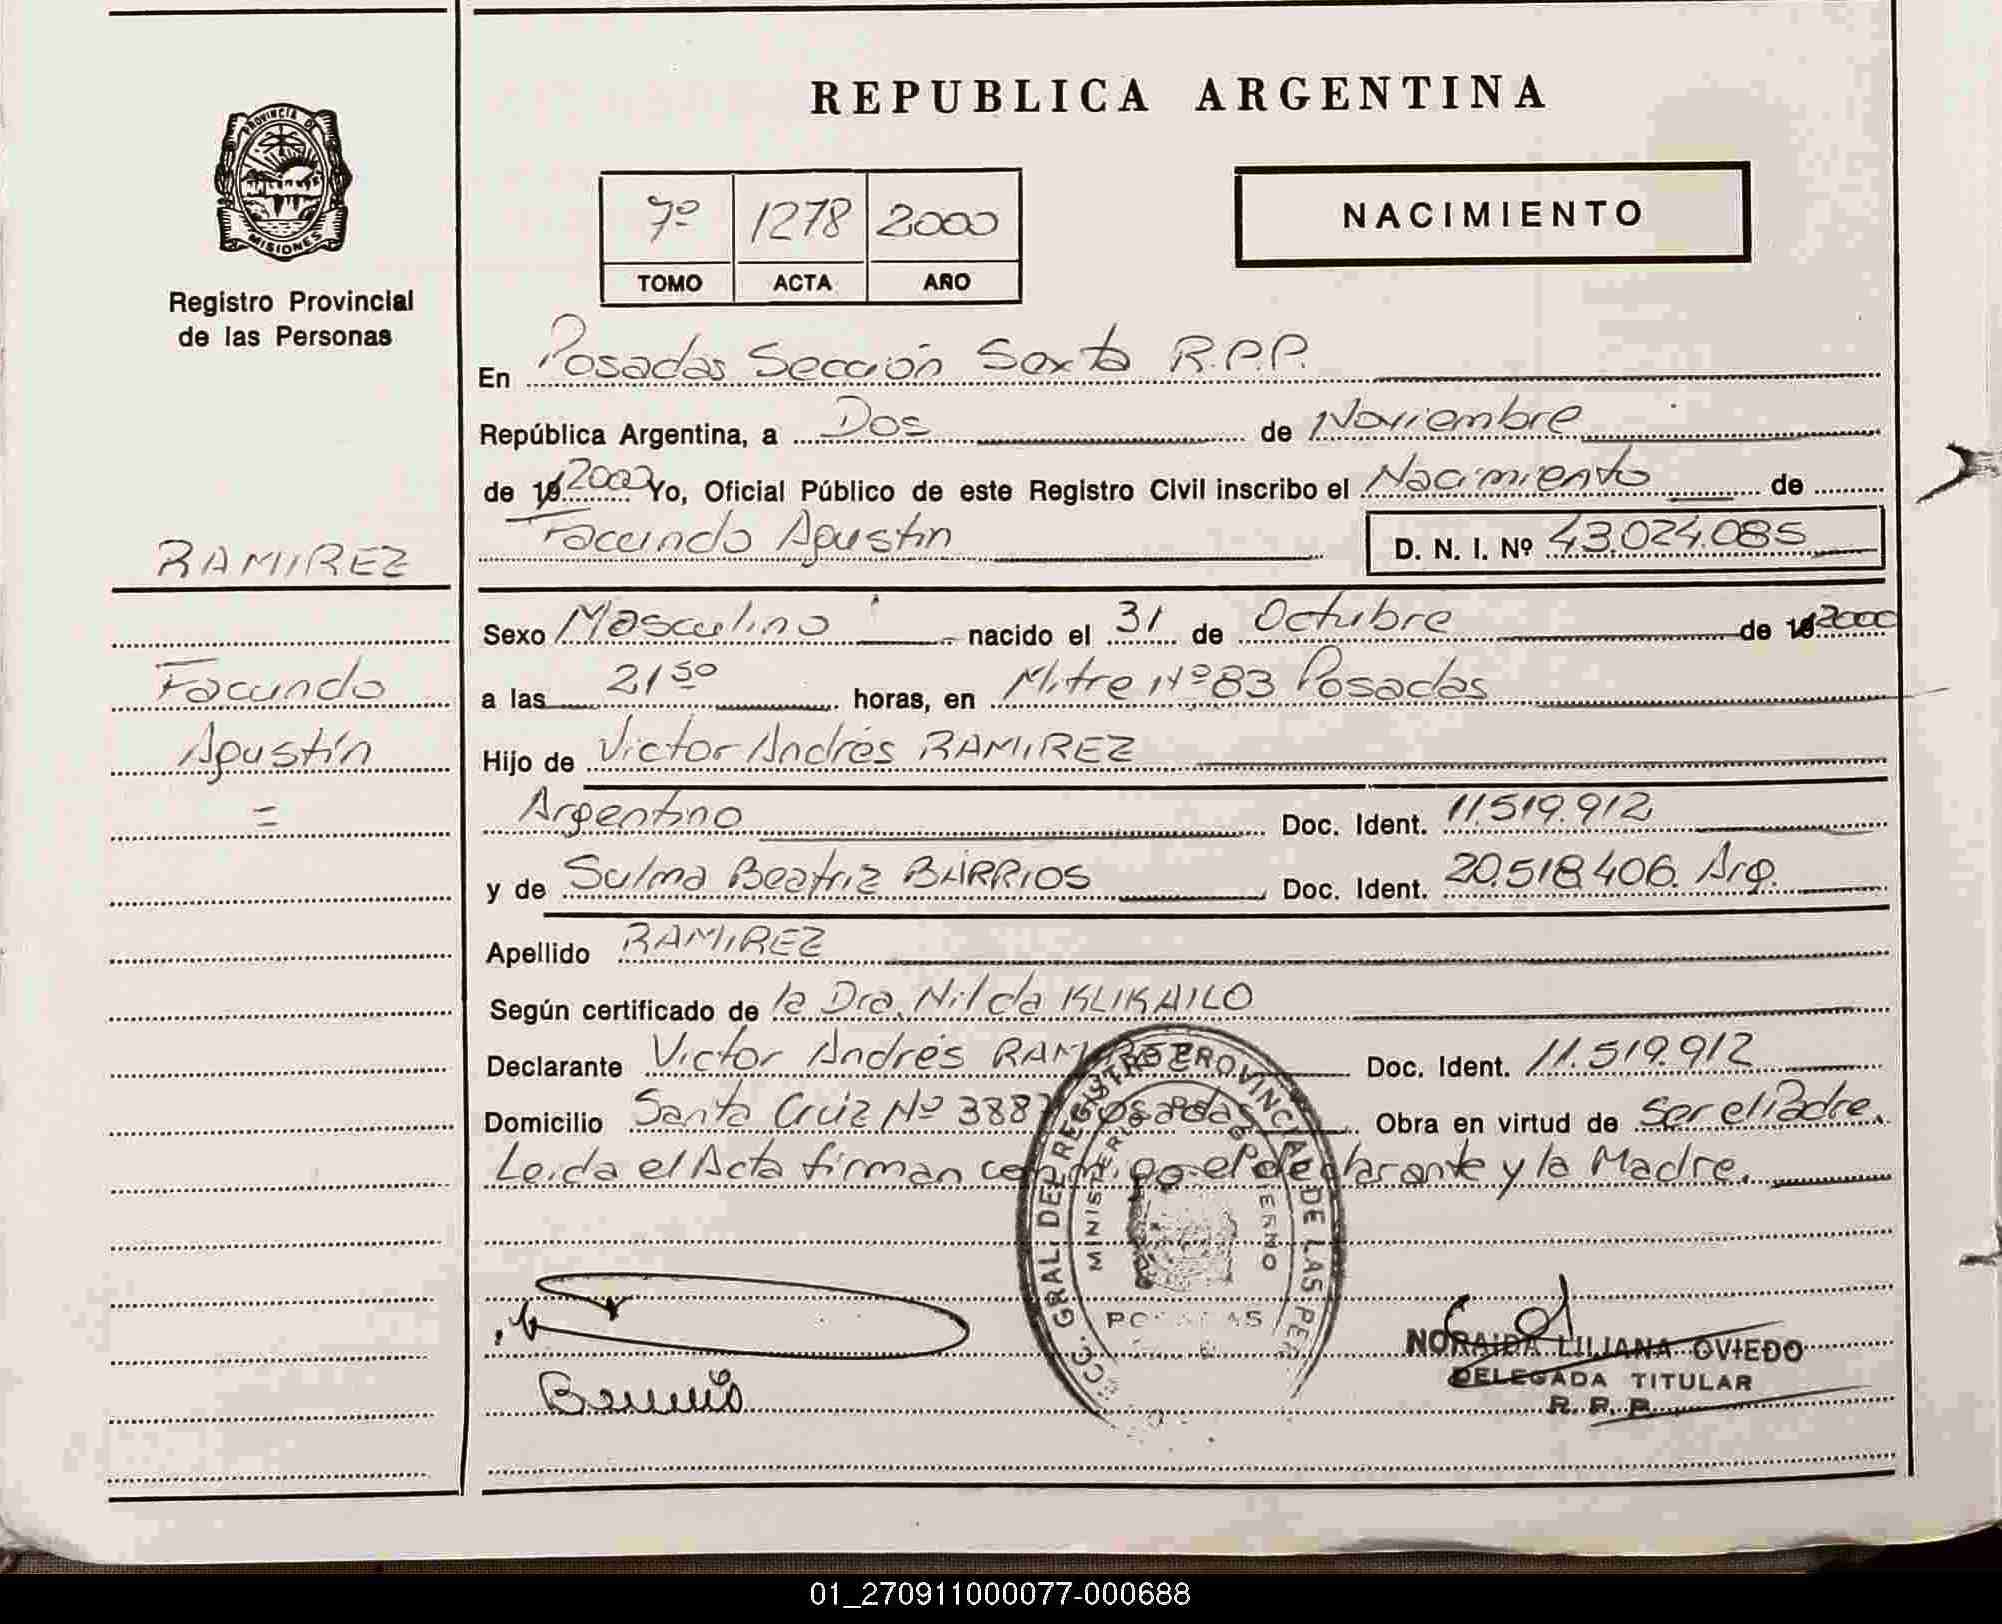 REPUBLICA ARGENTINA
PROVINCIA DE
MISIONES
Registro Provincial
de las Personas
7º 1278 2000
TOMO ACTA AÑO
NACIMIENTO
En Posadas Sección Sexta R.P.P.
República Argentina, a Dos de Noviembre
de 19 2000 Yo, Oficial Público de este Registro Civil inscribo el Nacimiento de
Facundo Agustin D. N. I. Nº 43.024.085
RAMIREZ
Sexo Masculino nacido el 31 de Octubre de 19 2000
Facundo
a las 21 50 horas, en Mitre Nº 83 Posadas
Agustín
Hijo de Victor Andrés RAMIREZ
=
Argentino Doc. Ident. 11.519.912
y de Sulma Beatriz BARRIOS Doc. Ident. 20.518.406. Arg.
Apellido RAMIREZ
Según certificado de la Dra. Nilda KLIKAILO
Declarante Victor Andrés RAMIREZ Doc. Ident. 11.519.912
Domicilio Santa Cruz Nº 3887 Posadas Obra en virtud de Ser el Padre.
Leida el Acta firman conmigo el declarante y la Madre.
GRAL. DEL REGISTRO PROVINCIAL DE LAS PER
MINISTERIO DE GOBIERNO
POSADAS
NORAIDA LILIANA OVIEDO
DELEGADA TITULAR
R. P. P.
01_270911000077-000688